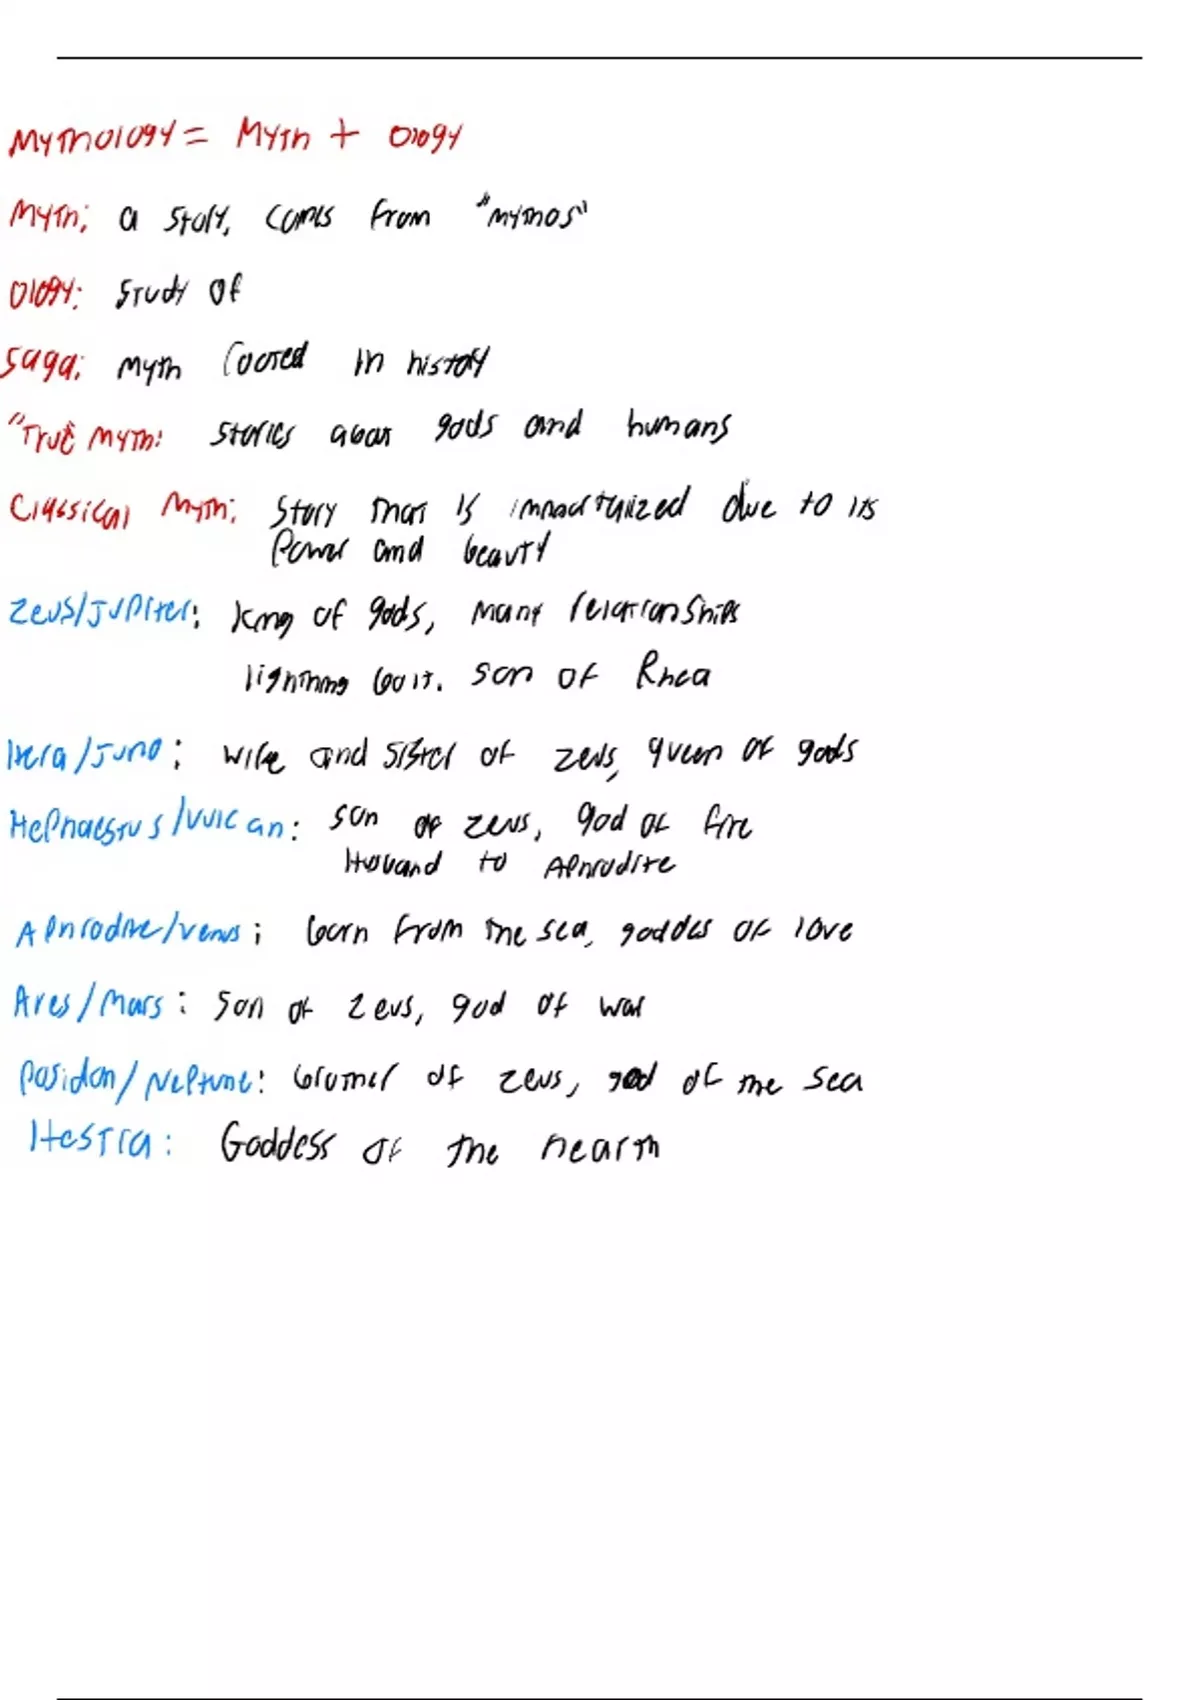 Mythology = Myth + Ology
Myth: a story, comes from "mythos"
Ology: study of
Saga: myth rooted in history
"True" Myth: stories about gods and humans
Classical Myth: Story that is immortalized due to its
power and beauty
Zeus/Jupiter: King of gods, many relationships
lightning bolt. son of Rhea
Hera/Juno: wife and sister of Zeus, queen of gods
Hephaestus/Vulcan: son of Zeus, god of fire
Husband to Aphrodite
Aphrodite/Venus: born from the sea, goddes of love
Ares/Mars: son of Zeus, god of war
Posidon/Neptune: brother of Zeus, god of the sea
Hestia: Goddess of the hearth